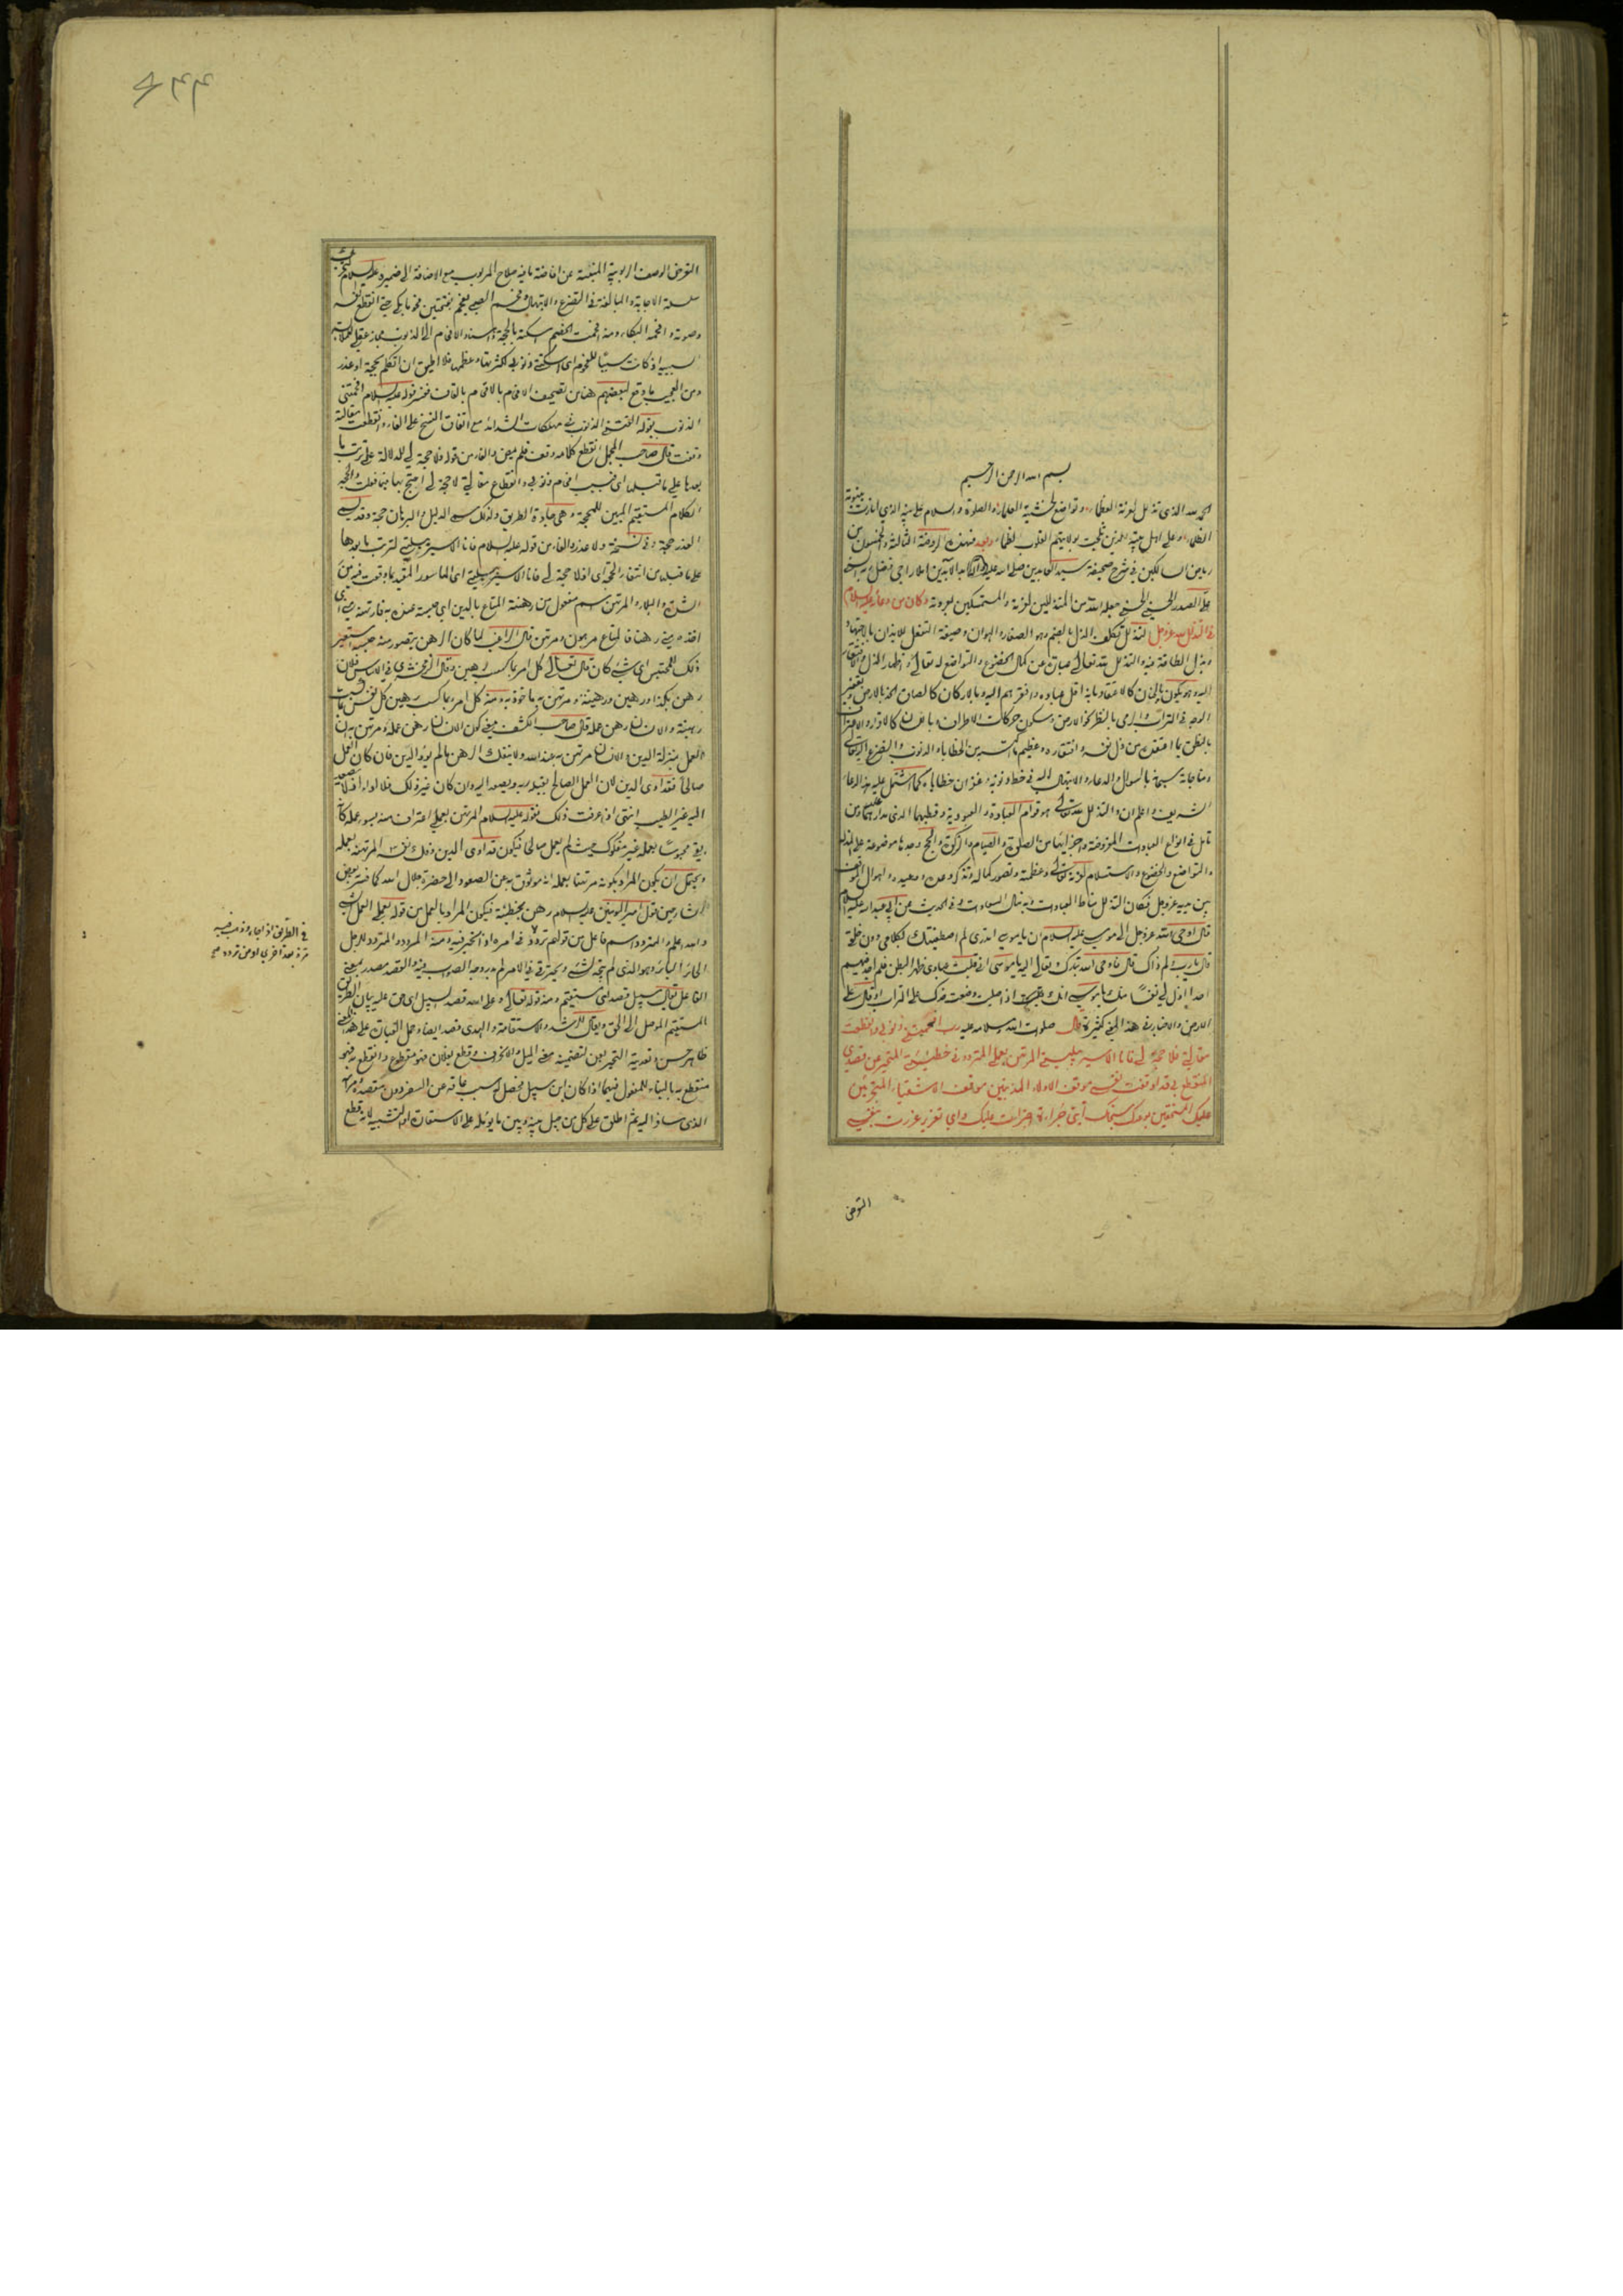 بسم الله الرحمن الرحيم
الحمد لله الذى تذلل لعزته العظماء وتواضع لخشيته العلماء والصلوة والسلام على نبيه الذي انارت بنبوته
الظلماء وعلى اهل بيته الذين بولايتهم القلوب وبعد فهذه الروضة الثالثة والخمسون من
رياض السالكين فى شرح صحيفة سيد العابدين صلى الله عليه وآله املاء راجى فضل ربه السنى
على الصدر الحسينى الحسنى جعله الله من المتذللين لعزته والمستمسكين بعروته وكان من دعائه عليه السلام
فى التذلل لله عزوجل التذلل تكلف الذل بالضم وهو الصغار والهوان وصيغة التفعل للايذان بالاجتهاد
وبذل الطاقة فيه والتذلل لله تعالى عبارة عن كمال الخضوع والتواضع له تعالى واظهار الذل والافتقار
اليه وهو يكون بالجنان كالاعتقاد بانه اقل عباده وافقرهم اليه وبالاركان كالصاق الخد بالارض وتعفير
الوجه فى التراب والرمى بالنظر نحو الارض وسكون حركات الاطراف وباللسان كالاقرار والاعتراف
بالنطق بما اعتقده من ذل نفسه وافتقاره وعظيم ما من الخطايا والذنوب والتضرع اليه تعالى
ومناجاته سبحانه بالسؤال والدعاء والابتهال اليه فى حط ذنوبه وغفران خطاياه كما اشتمل عليه هذا الدعاء
الشريف واعلم ان التذلل لله تعالى هو قوام العبادة والعبودية وقطبها الذى مدارهما عليه ومن
تامل فى انواع العبادات المفروضة وجزئياتها من الصلوة والصيام والزكوة والحج وجدها موضوعة على التذلل
والتواضع والخضوع والاستسلام لعزته تعالى وعظمته وتصور كماله وتذكر وعده ووعيده واهوال الموقف
بين يديه عزوجل فكان التذلل مناط العبادات وبه تنال السعادات وفى الحديث عن ابى عبدالله عليه السلام
قال اوحى الله عزوجل الى موسى عليه السلام ان يا موسى اتدرى لم اصطفيتك بكلامى دون خلقى
قال يا رب ولم ذاك قال فاوحى الله تبارك وتعالى اليه يا موسى انى قلبت عبادى ظهرا لبطن فلم اجد فيهم
احدا اذل لى نفسا منك يا موسى انك اذا صليت وضعت خدك على التراب او قال على
الارض والاخبار فى هذا المعنى كثيرة قال صلوات الله وسلامه عليه رب افحمتنى ذنوبى وانقطعت
مقالتى فلا حجة لى فانا الاسير ببليتى المرتهن بعملى المتردد فى خطيئتى المتحير عن قصدى
المنقطع بى قد اوقفت نفسى موقف الاذلاء المذنبين موقف الاشقياء المتجرئين
عليك المستخفين بوعدك سبحانك اى جرأة اجترأت عليك واى تغرير غررت بنفسى
التعرض
التعرض لوصف الربوبية المنبئة عن افاضة ما فيه صلاح المربوب مع الاضافة الى ضميره عليه السلام
سلسلة الاجابة والمبالغة فى التضرع والابتهال وفحم الصبى يفحم بفتحتين فحوما بكى حتى انقطع نفسه
وصوته وافحمه البكاء ومنه افحمت الخصم اسكته بالحجة واسناد الافحام الى الذنوب مجاز عقلى
لسببيه اذ كانت سببا للفحوم اى اسكتتنى ذنوبى لكثرتها وعظمها فلا اطيق ان اتكلم بحجة او عذر
ومن العجب ما وقع لبعضهم هنا من تصحيف الافحام بالاقحام بالقاف ففسر قوله عليه السلام افحمتنى
الذنوب بقوله القتنى الذنوب فى مهلكات الشدائد مع اتفاق النسخ على الفاء وانقطعت مقالته
وقفت قال صاحب المجمل انقطع كلامه وقف فلم يمض والفاء من قوله فلا حجة لى للدلالة على ترتب ما
بعدها على ما قبلها اى فبسبب افحام ذنوبى وانقطاع مقالتى لا حجة لى احتج بها فيما فعلت والحجة
الكلام المستقيم المبين للمحجة وهى جادة الطريق ولذلك سمى الدليل والبرهان حجة وقد يسمى
العذر حجة وفى نسخة ولا عذر والفاء من قوله عليه السلام فانا الاسير ببليتى لترتب ما بعدها
على ما قبلها من انتفاء الحجة اى اذ لا حجة لى فانا الاسير ببليتى اى الماسور المقيد بما وقعت فيه من
الشدة والبلاء والمرتهن اسم مفعول من رهنته المتاع بالدين اى حبسته عنده به فارتهنه منى اى
اخذه منى رهنا فالمتاع مرهون ومرتهن قال الراغب لما كان الرهن يتصور منه حبسه استعير
ذلك للمحتبس اى شئ كان قال تعالى كل امرء بما كسب رهين وقال الزمخشرى فى الاساس فلان
رهن بكذا ورهين ورهينة ومرتهن به ماخوذ به ومنه كل امرء بما كسب رهين كل نفس بما كسبت
رهينة والانسان رهن عمله قال صاحب الكشف معنى كون الانسان رهن عمله ومرتهن به ان
العمل بمنزلة الدين والانسان مرتهن به عند الله ولا ينفك الرهن ما لم يؤد الدين فان كان العمل
صالحا فقد ادى الدين لان العمل الصالح يقبله ربه ويصعد اليه وان كان غير ذلك فلا اداء اذ لا يصعد
اليه غير الطيب انتهى اذا عرفت ذلك فقوله عليه السلام المرتهن بعملى اعتراف منه بسوء عمله كانه
بقى محبوسا بعمله غير مفكوك حيث لم يعمل صالحا فيكون قد ادى الدين وفك نفسه المرتهنة بعمله
ويحتمل ان يكون المراد بكونه مرتهنا بعمله انه موثوق به عن الصعود الى حضرة جلال الله كما فسر بعض
الشارحين قول امير المؤمنين عليه السلام رهن بخطيئة فيكون المراد بالعمل من قوله بعملى العمل السئ
والله اعلم والمتردد اسم فاعل من قولهم تردد فى امره اذا تحير فيه ومنه المردود والمتردد للرجل
الحائر البائر وهو الذى لم يتجه لشئ ويتحير فى الامر لم يدر وجه الصواب فيه والقصد مصدر بمعنى
الفاعل يقال سبيل قصد اى مستقيم ومنه قوله تعالى وعلى الله قصد السبيل اى حق عليه بيان الطريق
المستقيم الموصل الى الحق ويقال للرشد والاستقامة والهدى قصد ايضا وحمل العبارة على هذا المعنى
ظاهر حسن وتعدية التحير بعن لتضمينه معنى الميل والانحراف وقطع بفلان فهو مقطوع وانقطع به فهو
منقطع به بالبناء للمفعول فيهما اذا كان ابن سبيل فحصل له سبب عاقه عن السفر دون مقصده ومرامه
الذى سافر اليه ثم اطلق على كل من حيل بينه وبين ما يؤمله على الاستعارة او التشبيه لانه قطع
فى الطريق اذا جاء وذهب فيه
مرة بعد اخرى او من تردده